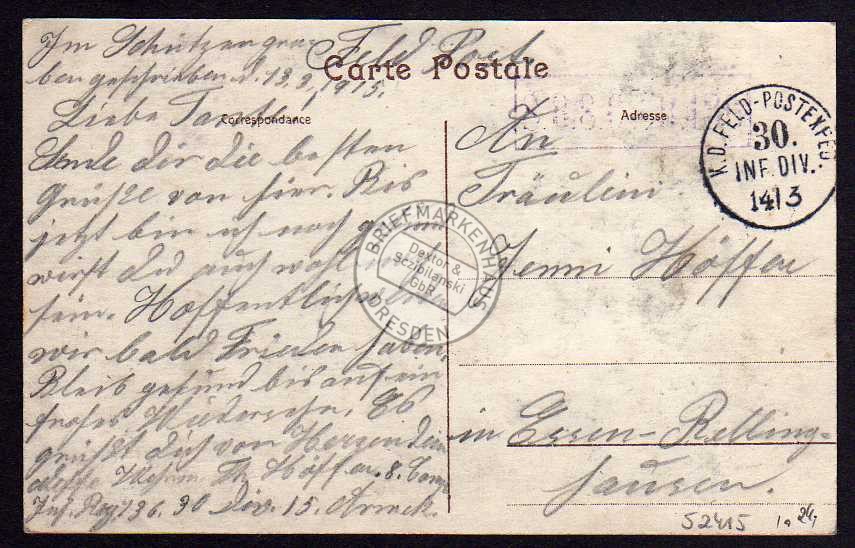 Im Schützengra-
ben geschrieben d. 13.3.1915.
Feld Post
Carte Postale
Correspondance
Adresse
K.D. FELD-POSTEXPED.
30.
INF. DIV.
14/3
Liebe
Sende dir die besten
Grüße von hier. Bis
jetzt bin ich noch
wirst du auch wohl
sein. Hoffentlich
wir bald Frieden haben.
Bleib gesund bis auf ein
frohes Wiedersehn. Es
grüßt dich von Herzen dein
Höffer. 8. Comp.
Inf. Reg. 136. 30 Div. 15. Armeek.
An
Fräulein
Jenni Höffer
in Essen-Relling-
hausen.
BRIEFMARKENHAUS
Dextor &
Sczibilanski
GbR
DRESDEN
52415